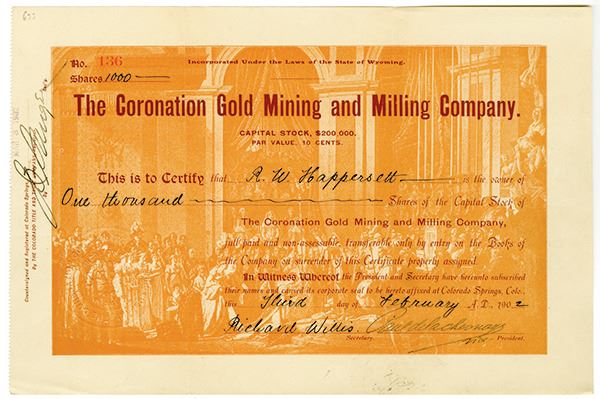 633
No. 136
Incorporated Under the Laws of the State of Wyoming.
Shares 1000
The Coronation Gold Mining and Milling Company.
CAPITAL STOCK, $200,000.
PAR VALUE, 10 CENTS.
This is to Certify that R. W. Happersett is the owner of
One thousand Shares of the Capital Stock of
The Coronation Gold Mining and Milling Company,
full paid and non-assessable, transferable only by entry on the Books of
the Company on surrender of this Certificate properly assigned.
In Witness Whereof the President and Secretary have hereunto subscribed
their names and caused its corporate seal to be hereto affixed at Colorado Springs, Colo.,
this Third day of February A.D., 1902
Richard Willis
Secretary. Vice President.
Countersigned and Registered at Colorado Springs
By THE COLORADO TITLE AND TRUST COMPANY